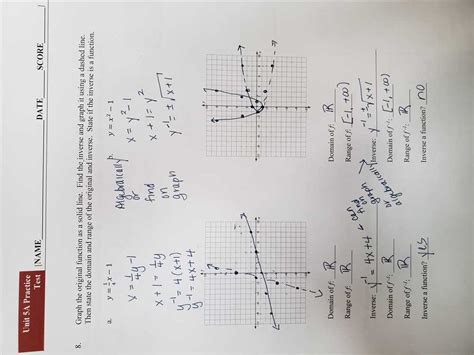 Unit 5A Practice
Test
NAME DATE SCORE
8. Graph the original function as a solid line. Find the inverse and graph it using a dashed line.
Then state the domain and range of the original and inverse. State if the inverse is a function.
a. y = 1/4 x − 1
x = 1/4 y − 1
x + 1 = 1/4 y
y⁻¹ = 4(x+1)
y⁻¹ = 4x + 4
Algebraically
or
find
on
graph
b. y = x² − 1
x = y² − 1
x + 1 = y²
y⁻¹ = ±√x+1
Domain of f: R
Range of f: R
Inverse: y⁻¹ = 4x+4
Domain of f⁻¹: R
Range of f⁻¹: R
Inverse a function? yes
can
find
graph
or
algebraically
Domain of f: R
Range of f: [-1, +∞)
Inverse: y⁻¹ = ±√x+1
Domain of f⁻¹: [-1, +∞)
Range of f⁻¹: R
Inverse a function? no